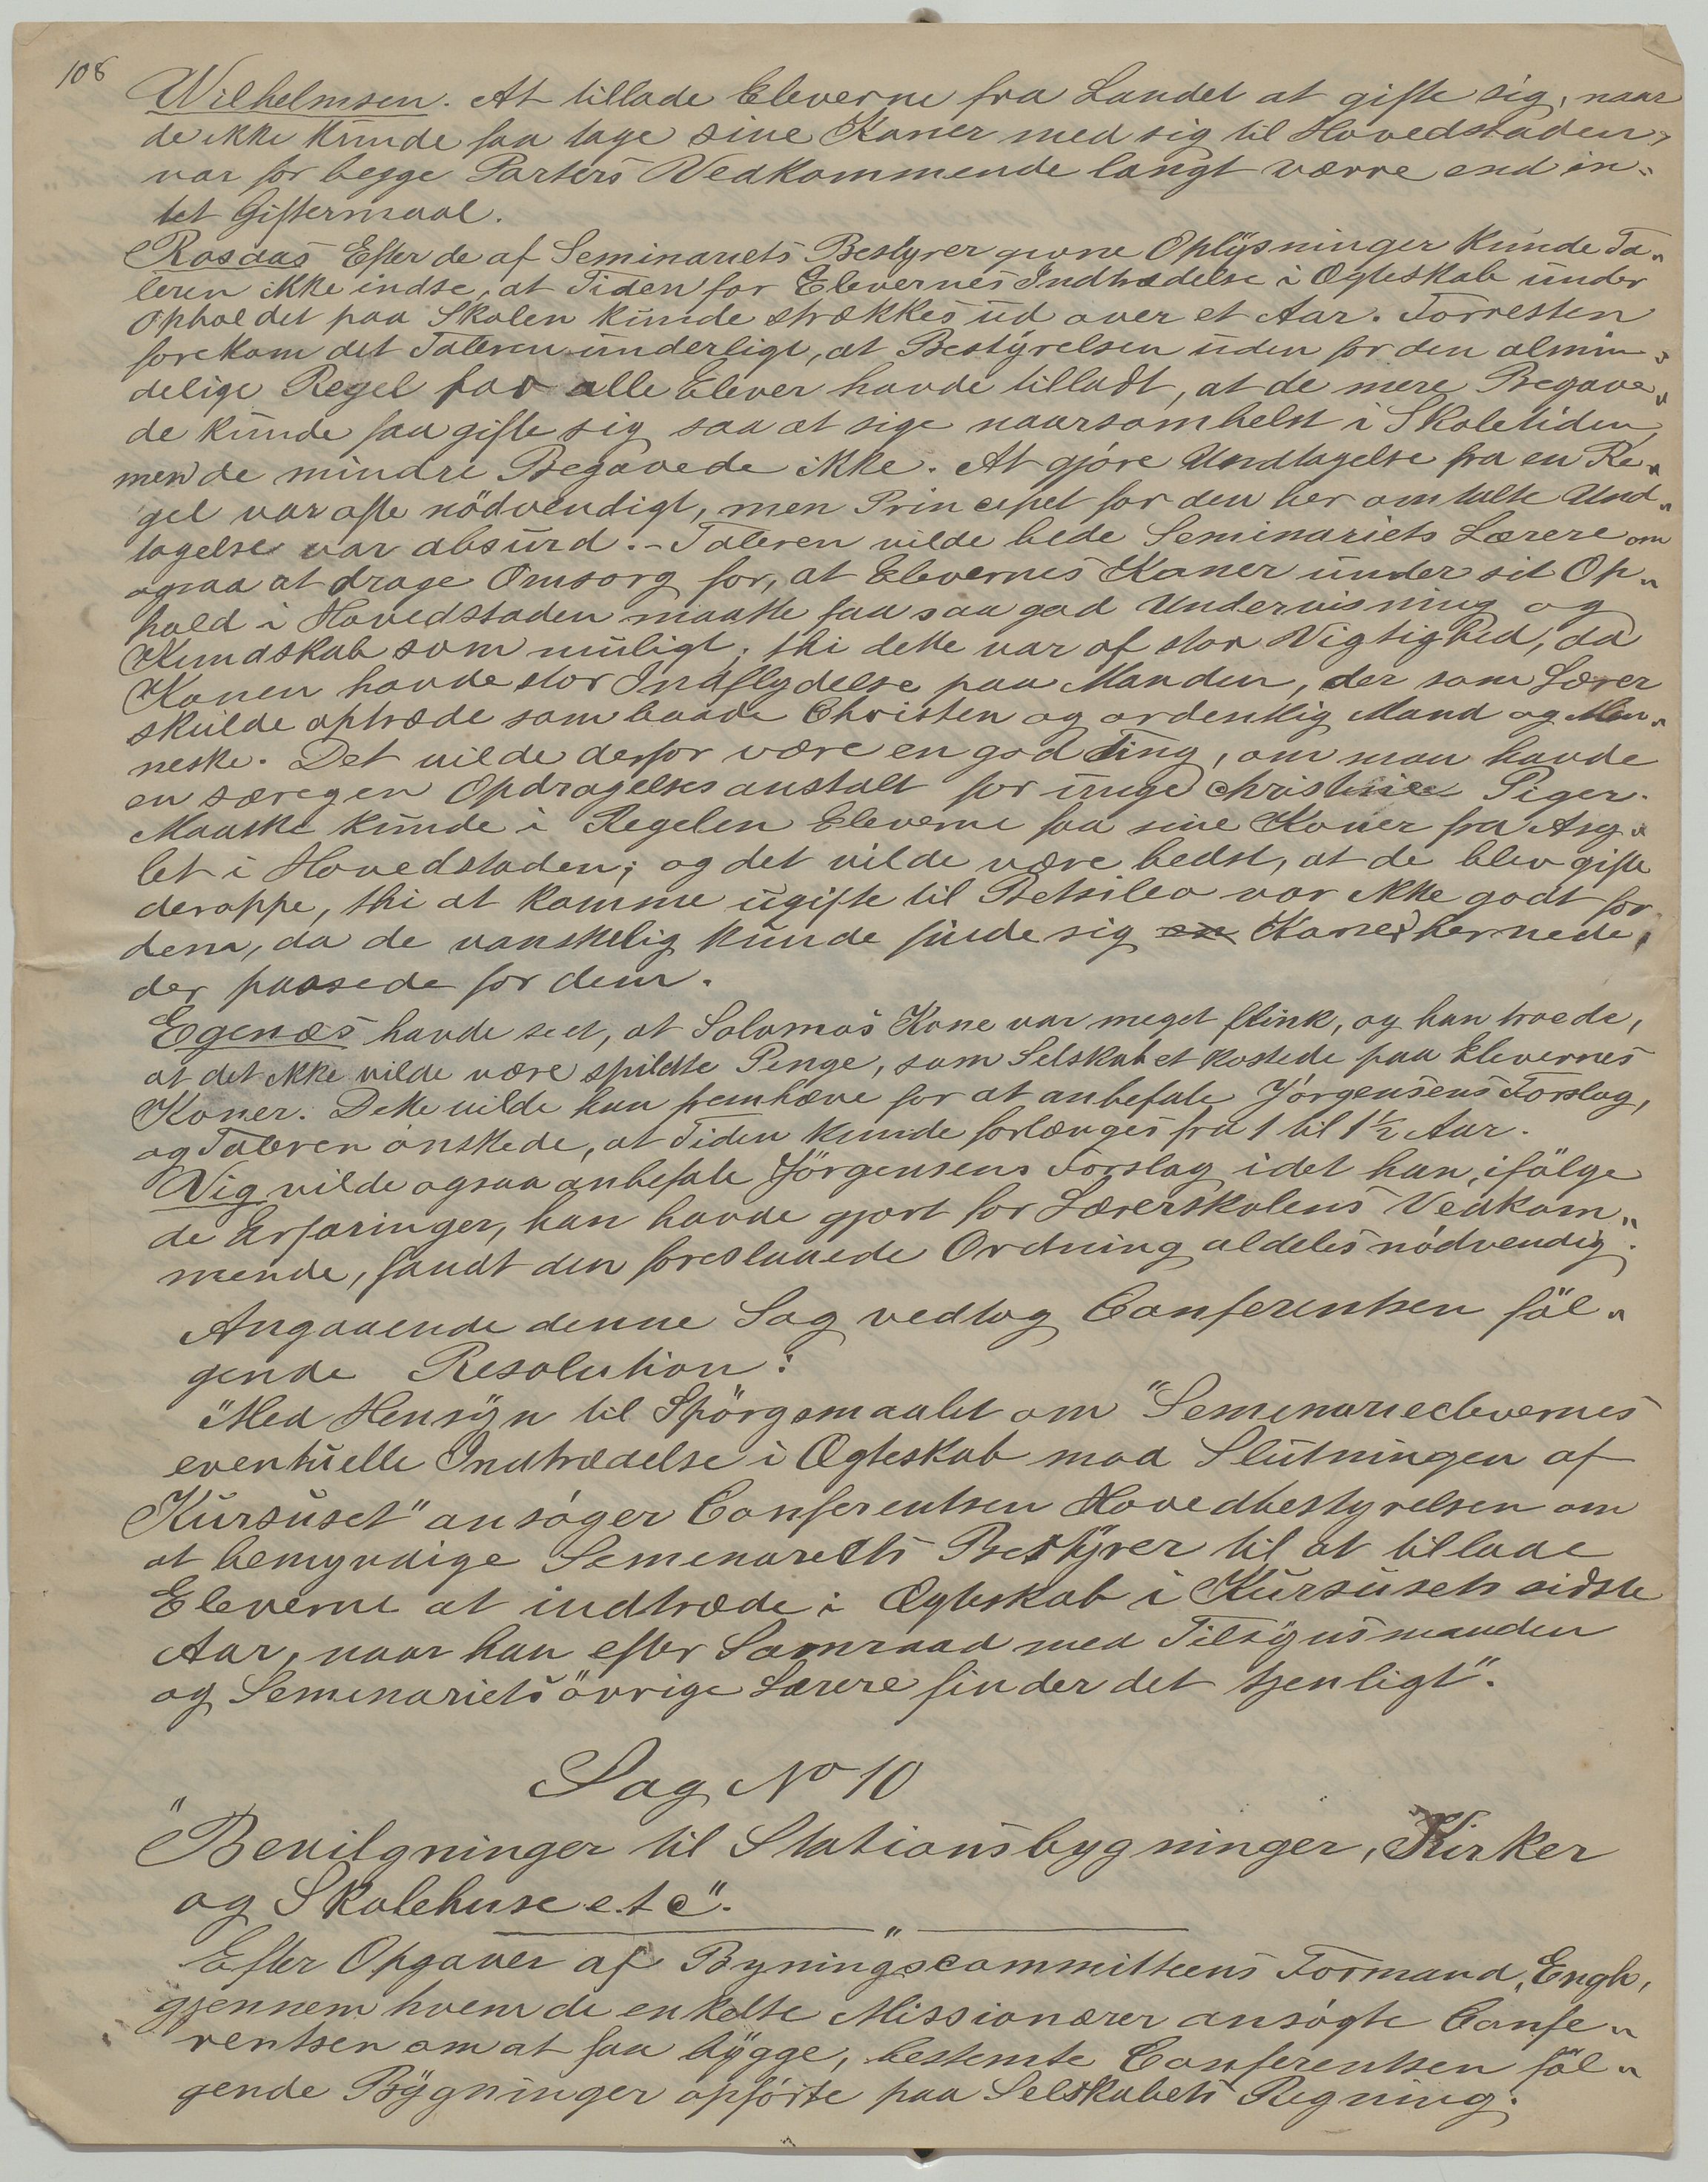 108
Wilhelmsen. At tillade Eleverne fra Landet at gifte sig, naar
de ikke kunde faa tage sine Koner med sig til Hovedstaden,
var for begge Parters Vedkommende langt værre end in-
tet Giftermaal.
Rosaas Efter de af Seminariets Bestyrer givne Oplysninger kunde Ta-
leren ikke indse, at Tiden for Elevernes Indtrædelse i Ægteskab under
Opholdet paa Skolen kunde strækkes ud over et Aar. Forresten
forekom det Taleren underligt, at Bestyrelsen uden for den almin-
delige Regel for alle Elever havde tilladt, at de mere Begave-
de kunde faa gifte sig saa at sige naarsomhelst i Skoletiden,
men de mindre Begavede ikke. At gjøre Undtagelse fra en Re-
gel var ofte nödvendigt, men Principet for den her omtalte Und-
tagelse var absurd. - Taleren vilde bede Seminariets Lærere om
ogsaa at drage Omsorg for, at Elevernes Koner under sit Op-
hold i Hovedstaden maatte faa saa god Undervisning og
Kundskab som muligt; thi dette var af stor Vigtighed, da
Konen havde stor Indflydelse paa Manden, der som Lærer
skulde optræde som baade Christen og ordentlig Mand og Men-
neske. Det vilde derfor være en god Ting, om man havde
en særegen Opdragelsesanstalt for unge christne Piger.
Maaske kunde i Regelen Eleverne faa sine Koner fra Asy-
let i Hovedstaden; og det vilde være bedst, at de blev gifte
deroppe, thi at komme ugifte til Betsileo var ikke godt for
dem, da de vanskelig kunde finde sig en Koner hernede,
der passede for dem.
Egenæs havde seet, at Salomos Kone var meget flink, og han troede,
at det ikke vilde være spildte Penge, som Selskabet kostede paa Elevernes
Koner. Dette vilde han fremhæve for at anbefale Jörgensens Forslag,
og Taleren ønskede, at Tiden kunde forlænges fra 1 til 1½ Aar.
Vig vilde ogsaa anbefale Jörgensens Forslag idet han, ifölge
de Erfaringer, han havde gjort for Lærerskolens Vedkom-
mende, fandt den foreslaaede Ordning aldeles nödvendig.
Angaaende denne Sag vedtog Conferentsen föl-
gende Resolution:
"Med Hensyn til Spörgsmaalet om "Seminarieelevernes
eventuelle Indtrædelse i Ægteskab mod Slutningen af
Kursuset" ansöger Conferentsen Hovedbestyrelsen om
at bemyndige Semenarets Bestyrer til at tillade
Eleverne at indtræde i Ægteskab i Kursusets sidste
Aar, naar han efter Samraad med Tilsynsmanden
og Semenariets övrige Lærere finder det tjenligt".
Sag No 10
"Bevilgninger til Stationsbygninger, Kirker
og Skolehuse etc".
Efter Opgaver af Byningscommitteens Formand, Engh,
gjennem hvem de enkelte Missionærer ansögte Confe-
rentsen om at faa bygge, bestemte Conferentsen föl-
gende Bygninger opförte paa Selskabets Regning.